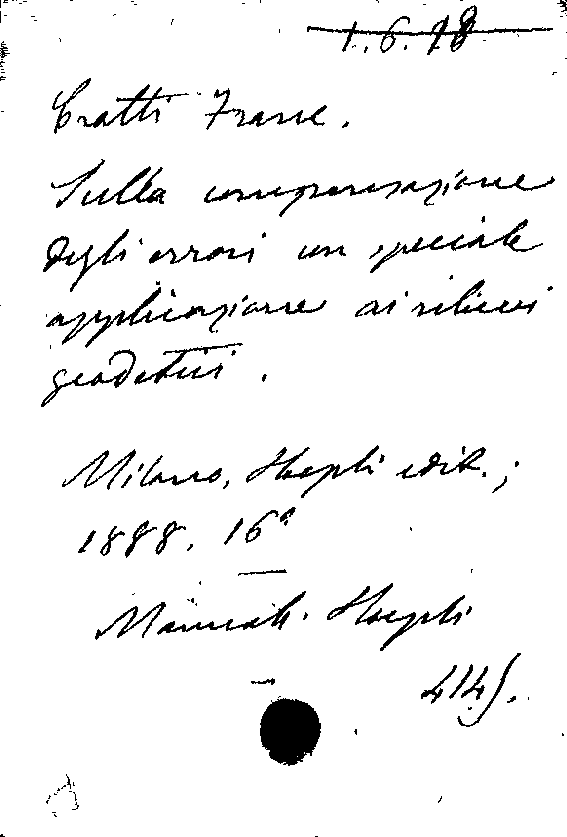 1.6.18
Cratti Franc.
Sulla compensazione
degli errori con speciale
applicazione ai rilievi
geodetici.
Milano, Hoepli edit.;
1888. 16º
Manuali Hoepli